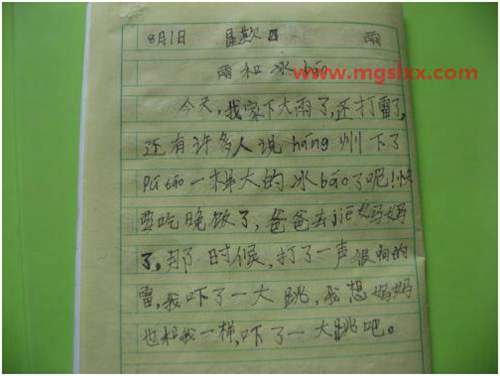 8月1日 星期日 雨
www.mgslxx.com
雨和冰báo
今天,我家下大雨了,还打雷了,
还有许多人说háng州下了
Pú táo一样大的冰báo了呢!快
要吃晚饭了,爸爸去jiē妈妈
了,那时候,打了一声很响的
雷,我吓了一大跳,我想妈妈
也和我一样,吓了一大跳吧。